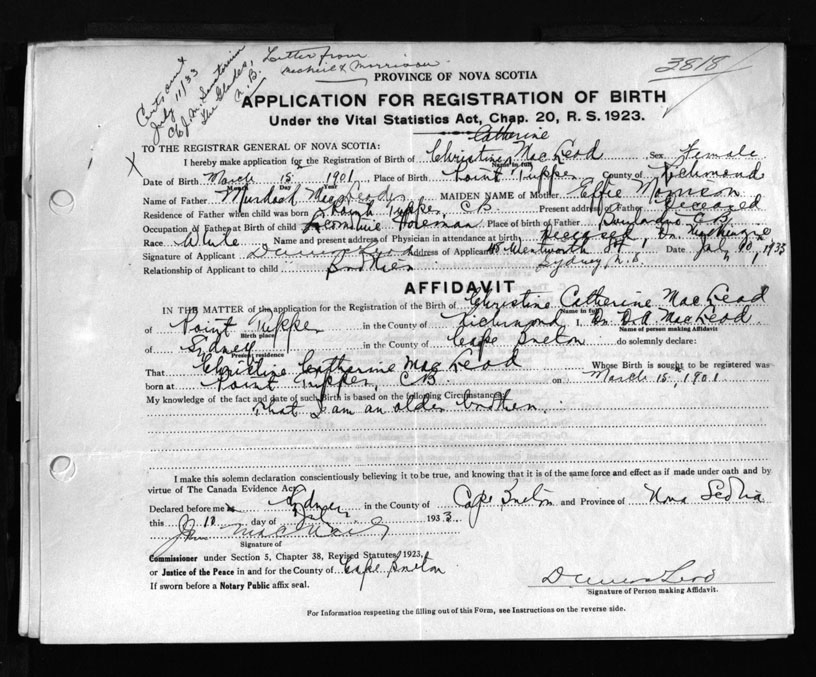 Letter from
Certs sent
July 11/33
N.B.
3818
PROVINCE OF NOVA SCOTIA
APPLICATION FOR REGISTRATION OF BIRTH
Under the Vital Statistics Act, Chap. 20, R. S. 1923.
TO THE REGISTRAR GENERAL OF NOVA SCOTIA:
Catherine
I hereby make application for the Registration of Birth of Christine MacLeod Sex Female
Name in full
Date of Birth March 15 1901 Place of Birth Point Tupper County of Richmond
Month Day Year
Name of Father Murdoch MacLeod MAIDEN NAME of Mother Effie Morrison
Residence of Father when child was born Point Tupper, C.B. Present address of Father Deceased
Occupation of Father at Birth of child Foreman Place of birth of Father C.B.
Race White Name and present address of Physician in attendance at birth Deceased, Dr.
Signature of Applicant Address of Applicant Wentworth St, Date July 10, 1933
Relationship of Applicant to child Brother Sydney, N.S.
AFFIDAVIT
IN THE MATTER of the application for the Registration of the Birth of Christine Catherine MacLeod
Name in full
of Point Tupper in the County of Richmond I, Dr D.A MacLeod
Birth place Name of person making Affidavit
of Sydney in the County of Cape Breton do solemnly declare:
Present residence
That Christine Catherine MacLeod Whose Birth is sought to be registered was
born at Point Tupper, C.B. on March 15, 1901
My knowledge of the fact and date of such Birth is based on the following Circumstances:
That I am an older brother.
I make this solemn declaration conscientiously believing it to be true, and knowing that it is of the same force and effect as if made under oath and by
virtue of The Canada Evidence Act.
Declared before me at Sydney in the County of Cape Breton and Province of Nova Scotia
this 10 day of July 1933
Signature of
Commissioner under Section 5, Chapter 38, Revised Statutes 1923,
or Justice of the Peace in and for the County of Cape Breton
If sworn before a Notary Public affix seal.
Signature of Person making Affidavit.
For Information respecting the filling out of this Form, see Instructions on the reverse side.